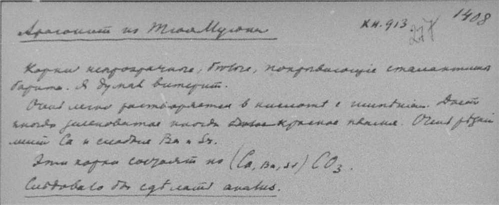 Арагонит из Тюя Муюна XII.913 1408
Корки непрозрачного, белого, покрывающие сталактита
барита. Я думал витерит.
Очень легко растворяется в кислоте с шипением. Дает
иногда зеленоватое иногда красное пламя. Очень
линии Ca и слабые Ba и Sr.
Эти корки состоят из (Ca, Ba, Sr) CO₃.
Следовало бы сделать анализ.